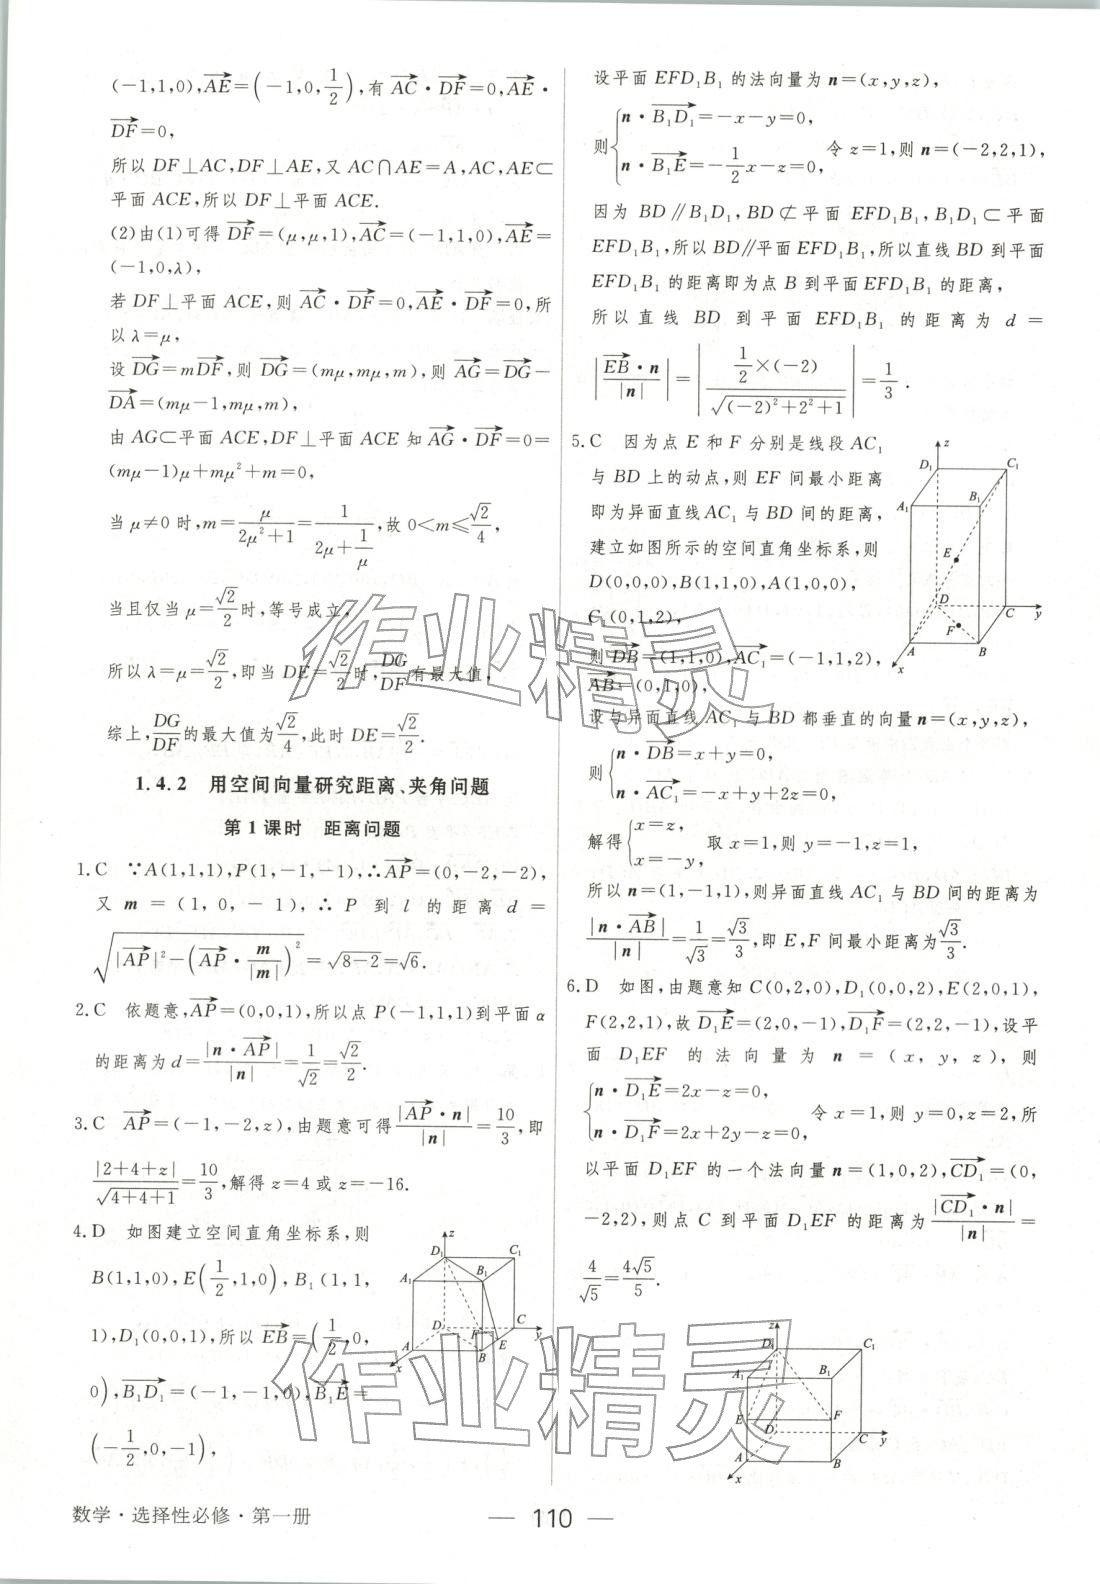 (-1,1,0),AE=(-1,0,1/2),有 AC·DF=0,AE·
DF=0,
所以 DF⊥AC,DF⊥AE,又 AC∩AE=A,AC,AE⊂
平面 ACE,所以 DF⊥平面 ACE.
(2)由(1)可得 DF=(μ,μ,1),AC=(-1,1,0),AE=
(-1,0,λ),
若 DF⊥平面 ACE,则 AC·DF=0,AE·DF=0,所
以 λ=μ,
设 DG=mDF,则 DG=(mμ,mμ,m),则 AG=DG-
DA=(mμ-1,mμ,m),
由 AG⊂平面 ACE,DF⊥平面 ACE 知 AG·DF=0=
(mμ-1)μ+mμ²+m=0,
当 μ≠0 时,m=μ/(2μ²+1)=1/(2μ+1/μ),故 0<m≤√2/4,
当且仅当 μ=√2/2时,等号成立,
所以 λ=μ=√2/2,即当 DE=√2/2时,DG/DF有最大值,
综上,DG/DF的最大值为√2/4,此时 DE=√2/2.
1.4.2 用空间向量研究距离、夹角问题
第1课时 距离问题
1.C ∵A(1,1,1),P(1,-1,-1),∴AP=(0,-2,-2),
又 m=(1,0,-1),∴P 到 l 的距离 d=
√(|AP|²-(AP·m/|m|)²)=√(8-2)=√6.
2.C 依题意,AP=(0,0,1),所以点 P(-1,1,1)到平面 α
的距离为 d=|n·AP|/|n|=1/√2=√2/2.
3.C AP=(-1,-2,z),由题意可得|AP·n|/|n|=10/3,即
|2+4+z|/√(4+4+1)=10/3,解得 z=4 或 z=-16.
4.D 如图建立空间直角坐标系,则
B(1,1,0),E(1/2,1,0),B₁(1,1,
1),D₁(0,0,1),所以 EB=(1/2,0,
0),B₁D₁=(-1,-1,0),B₁E=
(-1/2,0,-1),
z
D₁
C₁
A₁
B₁
D
F
C
y
A
B
E
x
设平面 EFD₁B₁ 的法向量为 n=(x,y,z),
则{n·B₁D₁=-x-y=0,
n·B₁E=-1/2x-z=0, 令 z=1,则 n=(-2,2,1),
因为 BD∥B₁D₁,BD⊄平面 EFD₁B₁,B₁D₁⊂平面
EFD₁B₁,所以 BD∥平面 EFD₁B₁,所以直线 BD 到平面
EFD₁B₁ 的距离即为点 B 到平面 EFD₁B₁ 的距离,
所以直线 BD 到平面 EFD₁B₁ 的距离为 d=
|EB·n/|n||=|1/2×(-2)/√((-2)²+2²+1)|=1/3.
5.C 因为点 E 和 F 分别是线段 AC₁
与 BD 上的动点,则 EF 间最小距离
即为异面直线 AC₁ 与 BD 间的距离,
建立如图所示的空间直角坐标系,则
D(0,0,0),B(1,1,0),A(1,0,0),
C₁(0,1,2),
则 DB=(1,1,0),AC₁=(-1,1,2),
AB=(0,1,0),
z
D₁
C₁
A₁
B₁
E
D
C
y
F
A
B
x
设与异面直线 AC₁ 与 BD 都垂直的向量 n=(x,y,z),
则{n·DB=x+y=0,
n·AC₁=-x+y+2z=0,
解得{x=z,
x=-y, 取 x=1,则 y=-1,z=1,
所以 n=(1,-1,1),则异面直线 AC₁ 与 BD 间的距离为
|n·AB|/|n|=1/√3=√3/3,即 E,F 间最小距离为√3/3.
6.D 如图,由题意知 C(0,2,0),D₁(0,0,2),E(2,0,1),
F(2,2,1),故 D₁E=(2,0,-1),D₁F=(2,2,-1),设平
面 D₁EF 的法向量为 n=(x,y,z),则
{n·D₁E=2x-z=0,
n·D₁F=2x+2y-z=0, 令 x=1,则 y=0,z=2,所
以平面 D₁EF 的一个法向量 n=(1,0,2),CD₁=(0,
-2,2),则点 C 到平面 D₁EF 的距离为|CD₁·n|/|n|=
4/√5=4√5/5.
z
D₁
C₁
A₁
B₁
E
F
D
C
y
A
B
x
作业精灵
作业精灵
数学·选择性必修·第一册
— 110 —